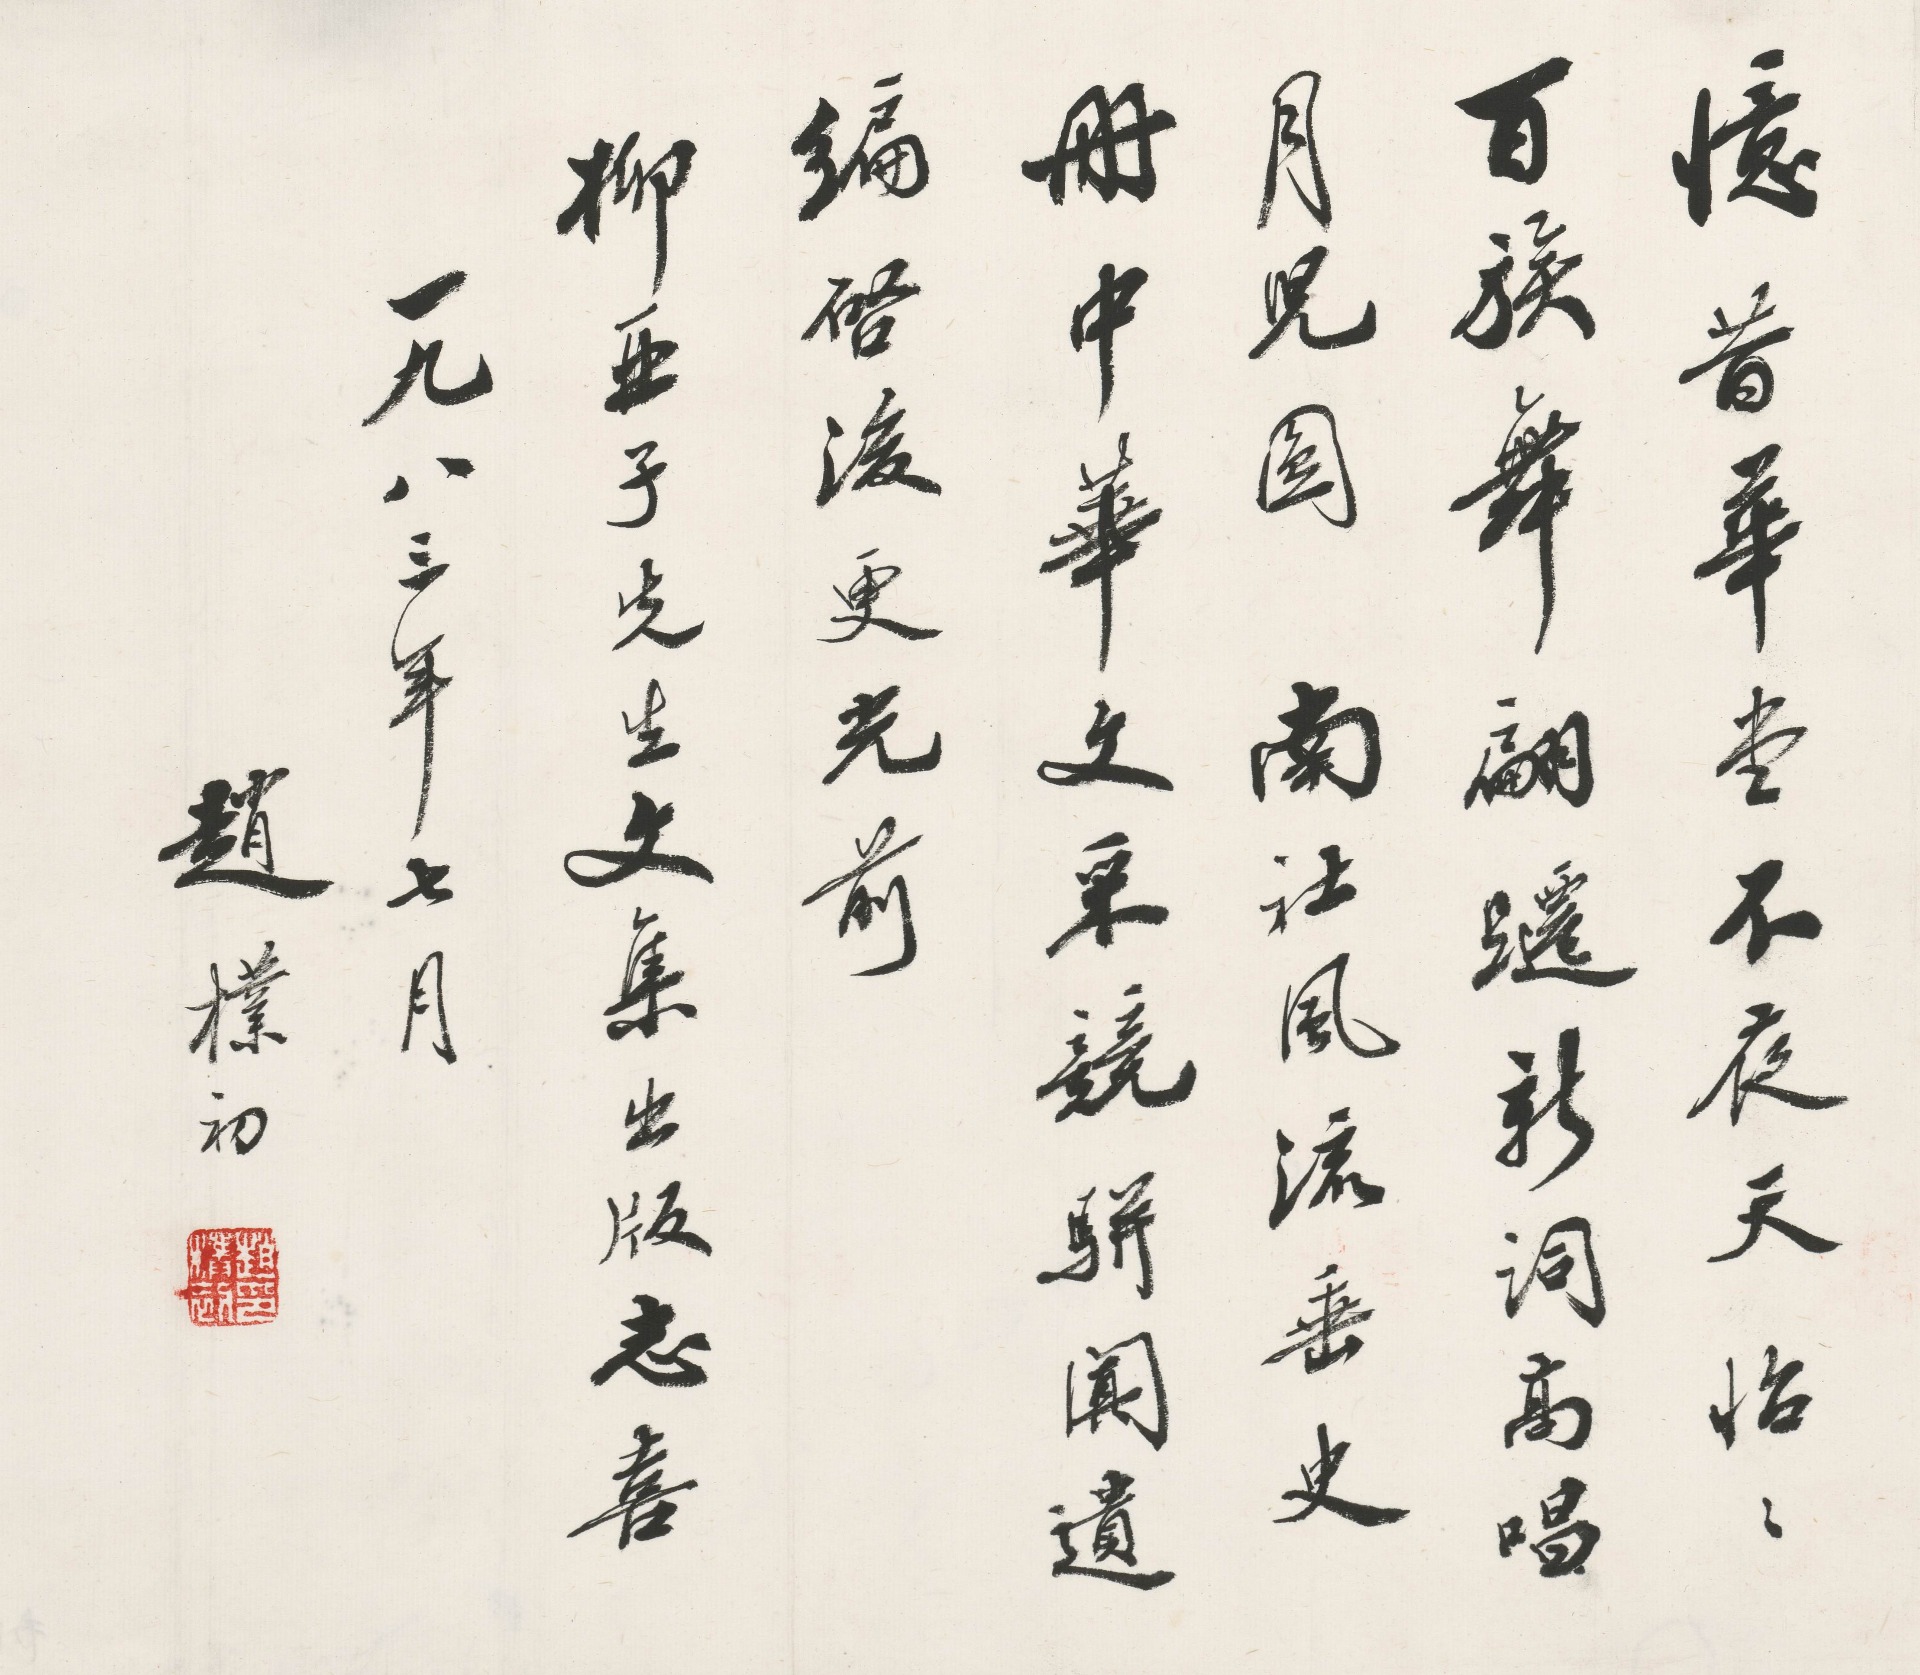 憶昔華堂不夜天怡〻
百族舞翩躚新詞高唱
月兒圓　南社風流垂史
册中華文采競騈闐遺
編啓後更光前
柳亞子先生文集出版志喜
一九八三年七月
趙樸初
趙樸初印